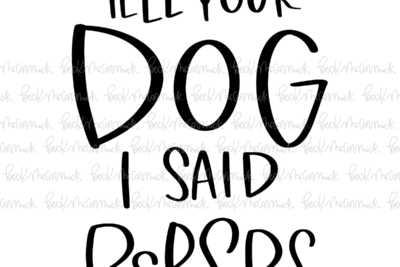 TELL YOUR
DOG
I SAID
PSPSPS